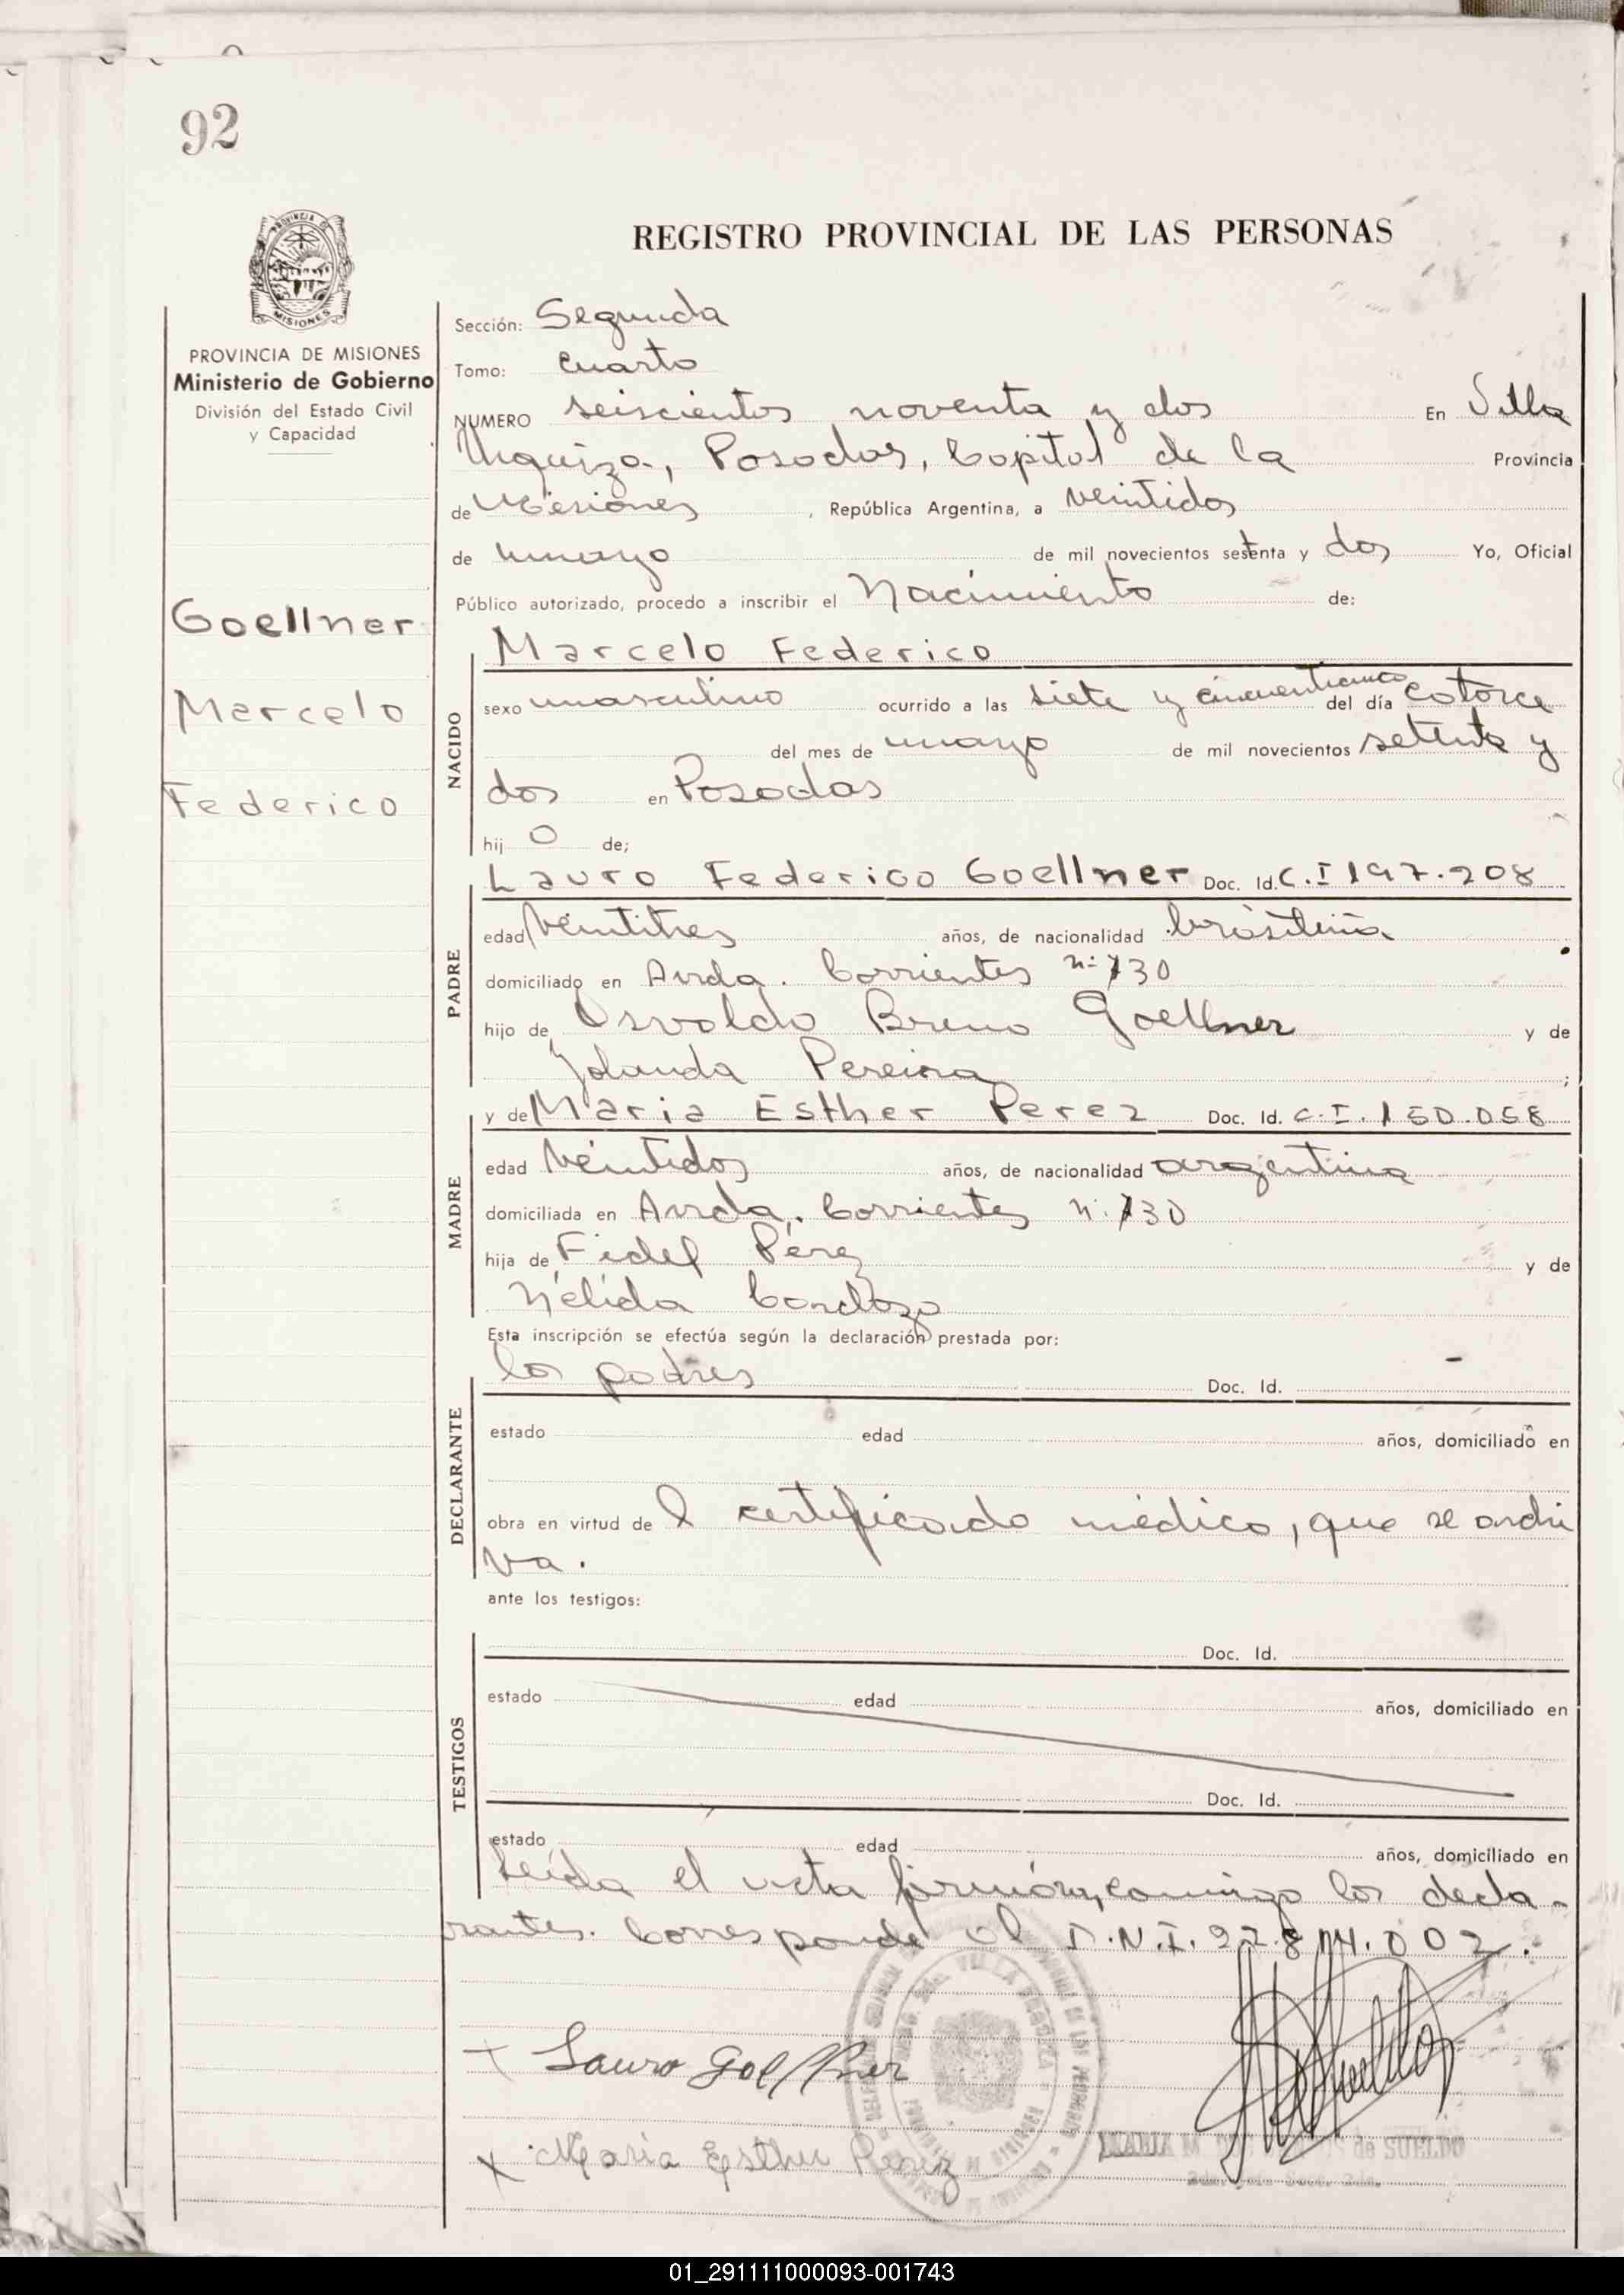 92
PROVINCIA DE
MISIONES
REGISTRO PROVINCIAL DE LAS PERSONAS
PROVINCIA DE MISIONES
Ministerio de Gobierno
División del Estado Civil
y Capacidad
Goellner
Marcelo
Federico
Sección: Segunda
Tomo: Cuarto
NUMERO seiscientos noventa y dos En Villa
Urquiza, Posadas, Capital de la Provincia
de Misiones, República Argentina, a veintidos
de mayo de mil novecientos setenta y dos Yo, Oficial
Público autorizado, procedo a inscribir el Nacimiento de:
Marcelo Federico
NACIDO
sexo masculino ocurrido a las siete y cincuenticinco del día catorce
del mes de mayo de mil novecientos setenta y
dos en Posadas
hij o de;
Lauro Federico Goellner Doc. Id. C.I 197.208
PADRE
edad veintitres años, de nacionalidad brasileña
domiciliado en Avda. Corrientes nº 130
hijo de Osvaldo Bruno Goellner y de
Yolanda Pereira ;
y de Maria Esther Perez Doc. Id. C.I. 150.058
MADRE
edad veintidos años, de nacionalidad argentina
domiciliada en Avda. Corrientes nº 130
hija de Fidel Pérez y de
Nélida Cardozo
Esta inscripción se efectúa según la declaración prestada por:
los padres Doc. Id.
DECLARANTE
estado edad años, domiciliado en
obra en virtud de l certificado médico, que se archi
va.
ante los testigos:
Doc. Id.
TESTIGOS
estado edad años, domiciliado en
Doc. Id.
estado edad años, domiciliado en
Leída el acta firman conmigo los decla-
rantes. Corresponde al D.N.I. 22.814.002.
x Lauro Goellner
x Maria Esther Perez
MARIA M. de SUELDO
01_291111000093-001743